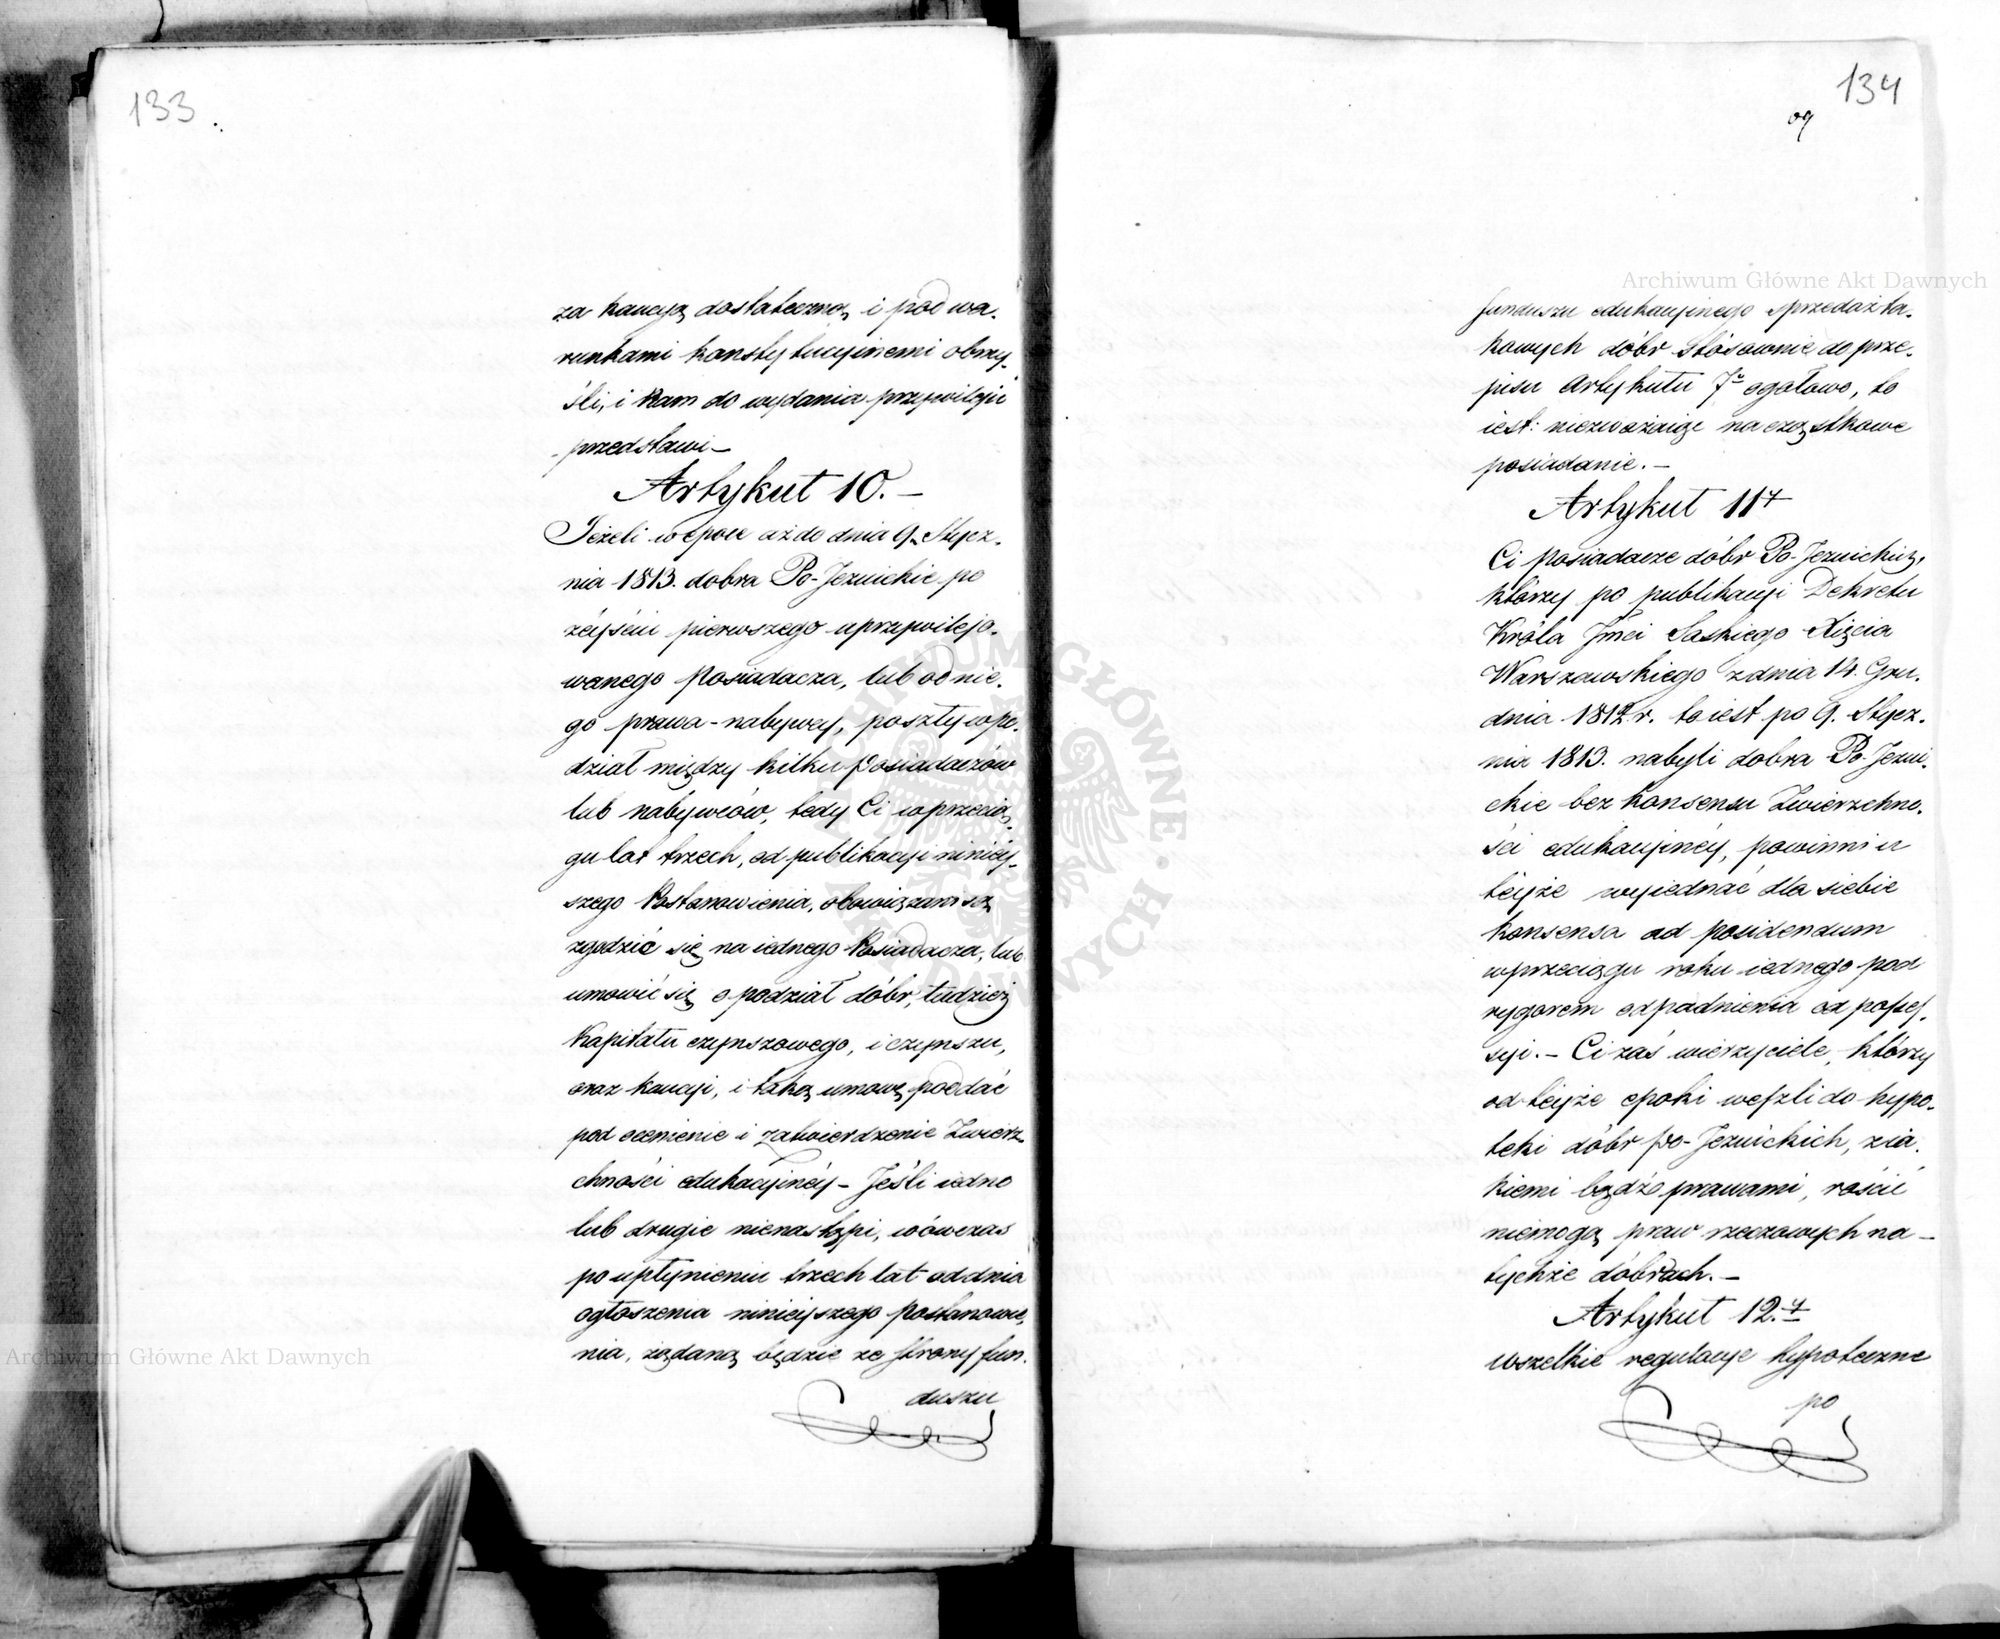 133
za kaucyą dostateczną i pod wa-
runkami konstytucyinemi obmy-
śli, i Nam do wydania przywileju
przedstawi –
Artykuł 10. –
Jeżeli w epoce aż do dnia 9. Stycz-
nia 1813. dobra Po-Jezuickie po
zéyściu pierwszego uprzywilejo-
wanego Posiadacza, lub od nie-
go prawa-nabywcy, poszły w po-
dział między kilku Posiadaczów
lub nabywców, tedy Ci w przecią-
gu lat trzech, od publikacyi niniéy-
szego Postanowienia, obowiązani są
zgodzić się na iednego Posiadacza, lub
umówić się o podział dóbr, tudzież
Kapitału czynszowego, i czynszu,
oraz kaucyi, i taką umowę poddać
pod ocenienie i zatwierdzenie Zwierz-
chności edukacyinéy – Jeśli iedno
lub drugie nienastąpi, wówczas
po upłynieniu trzech lat od dnia
ogłoszenia niniéjszego Postanowie-
nia, żądaną będzie ze strony fun-
duszu
134
funduszu edukacyinego sprzedaż ta-
kowych dóbr stósownie do prze-
pisu Artykułu 7º ogółowo, to
iest: niezważaiąc na cząstkowe
posiadanie. –
Artykuł 11y
Ci posiadacze dóbr Po-Jezuickich,
którzy po publikacyi Dekretu
Króla Jmci Saskiego Xięcia
Warszawskiego z dnia 14. Gru-
dnia 1812. r. to iest po 9. Stycz-
nia 1813. nabyli dobra Po-Jezui-
ckie bez konsensu Zwierzchno-
ści edukacyinéy, powinni u
téyże wyiednać dla siebie
konsensa ad possidendum
w przeciągu roku iednego pod
rygorem odpadnienia od posses-
syi. – Ci zaś wierzyciele, którzy
od téyże epoki weszli do hypo-
teki dóbr po-Jezuickich, z ia-
kiemi bądź prawami, rościć
niemogą praw rzeczowych na –
tychże dóbrach. –
Artykuł 12.y
Wszelkie regulacye hypoteczne
po
Archiwum Główne Akt Dawnych
Archiwum Główne Akt Dawnych
ARCHIWUM GŁÓWNE AKT DAWNYCH